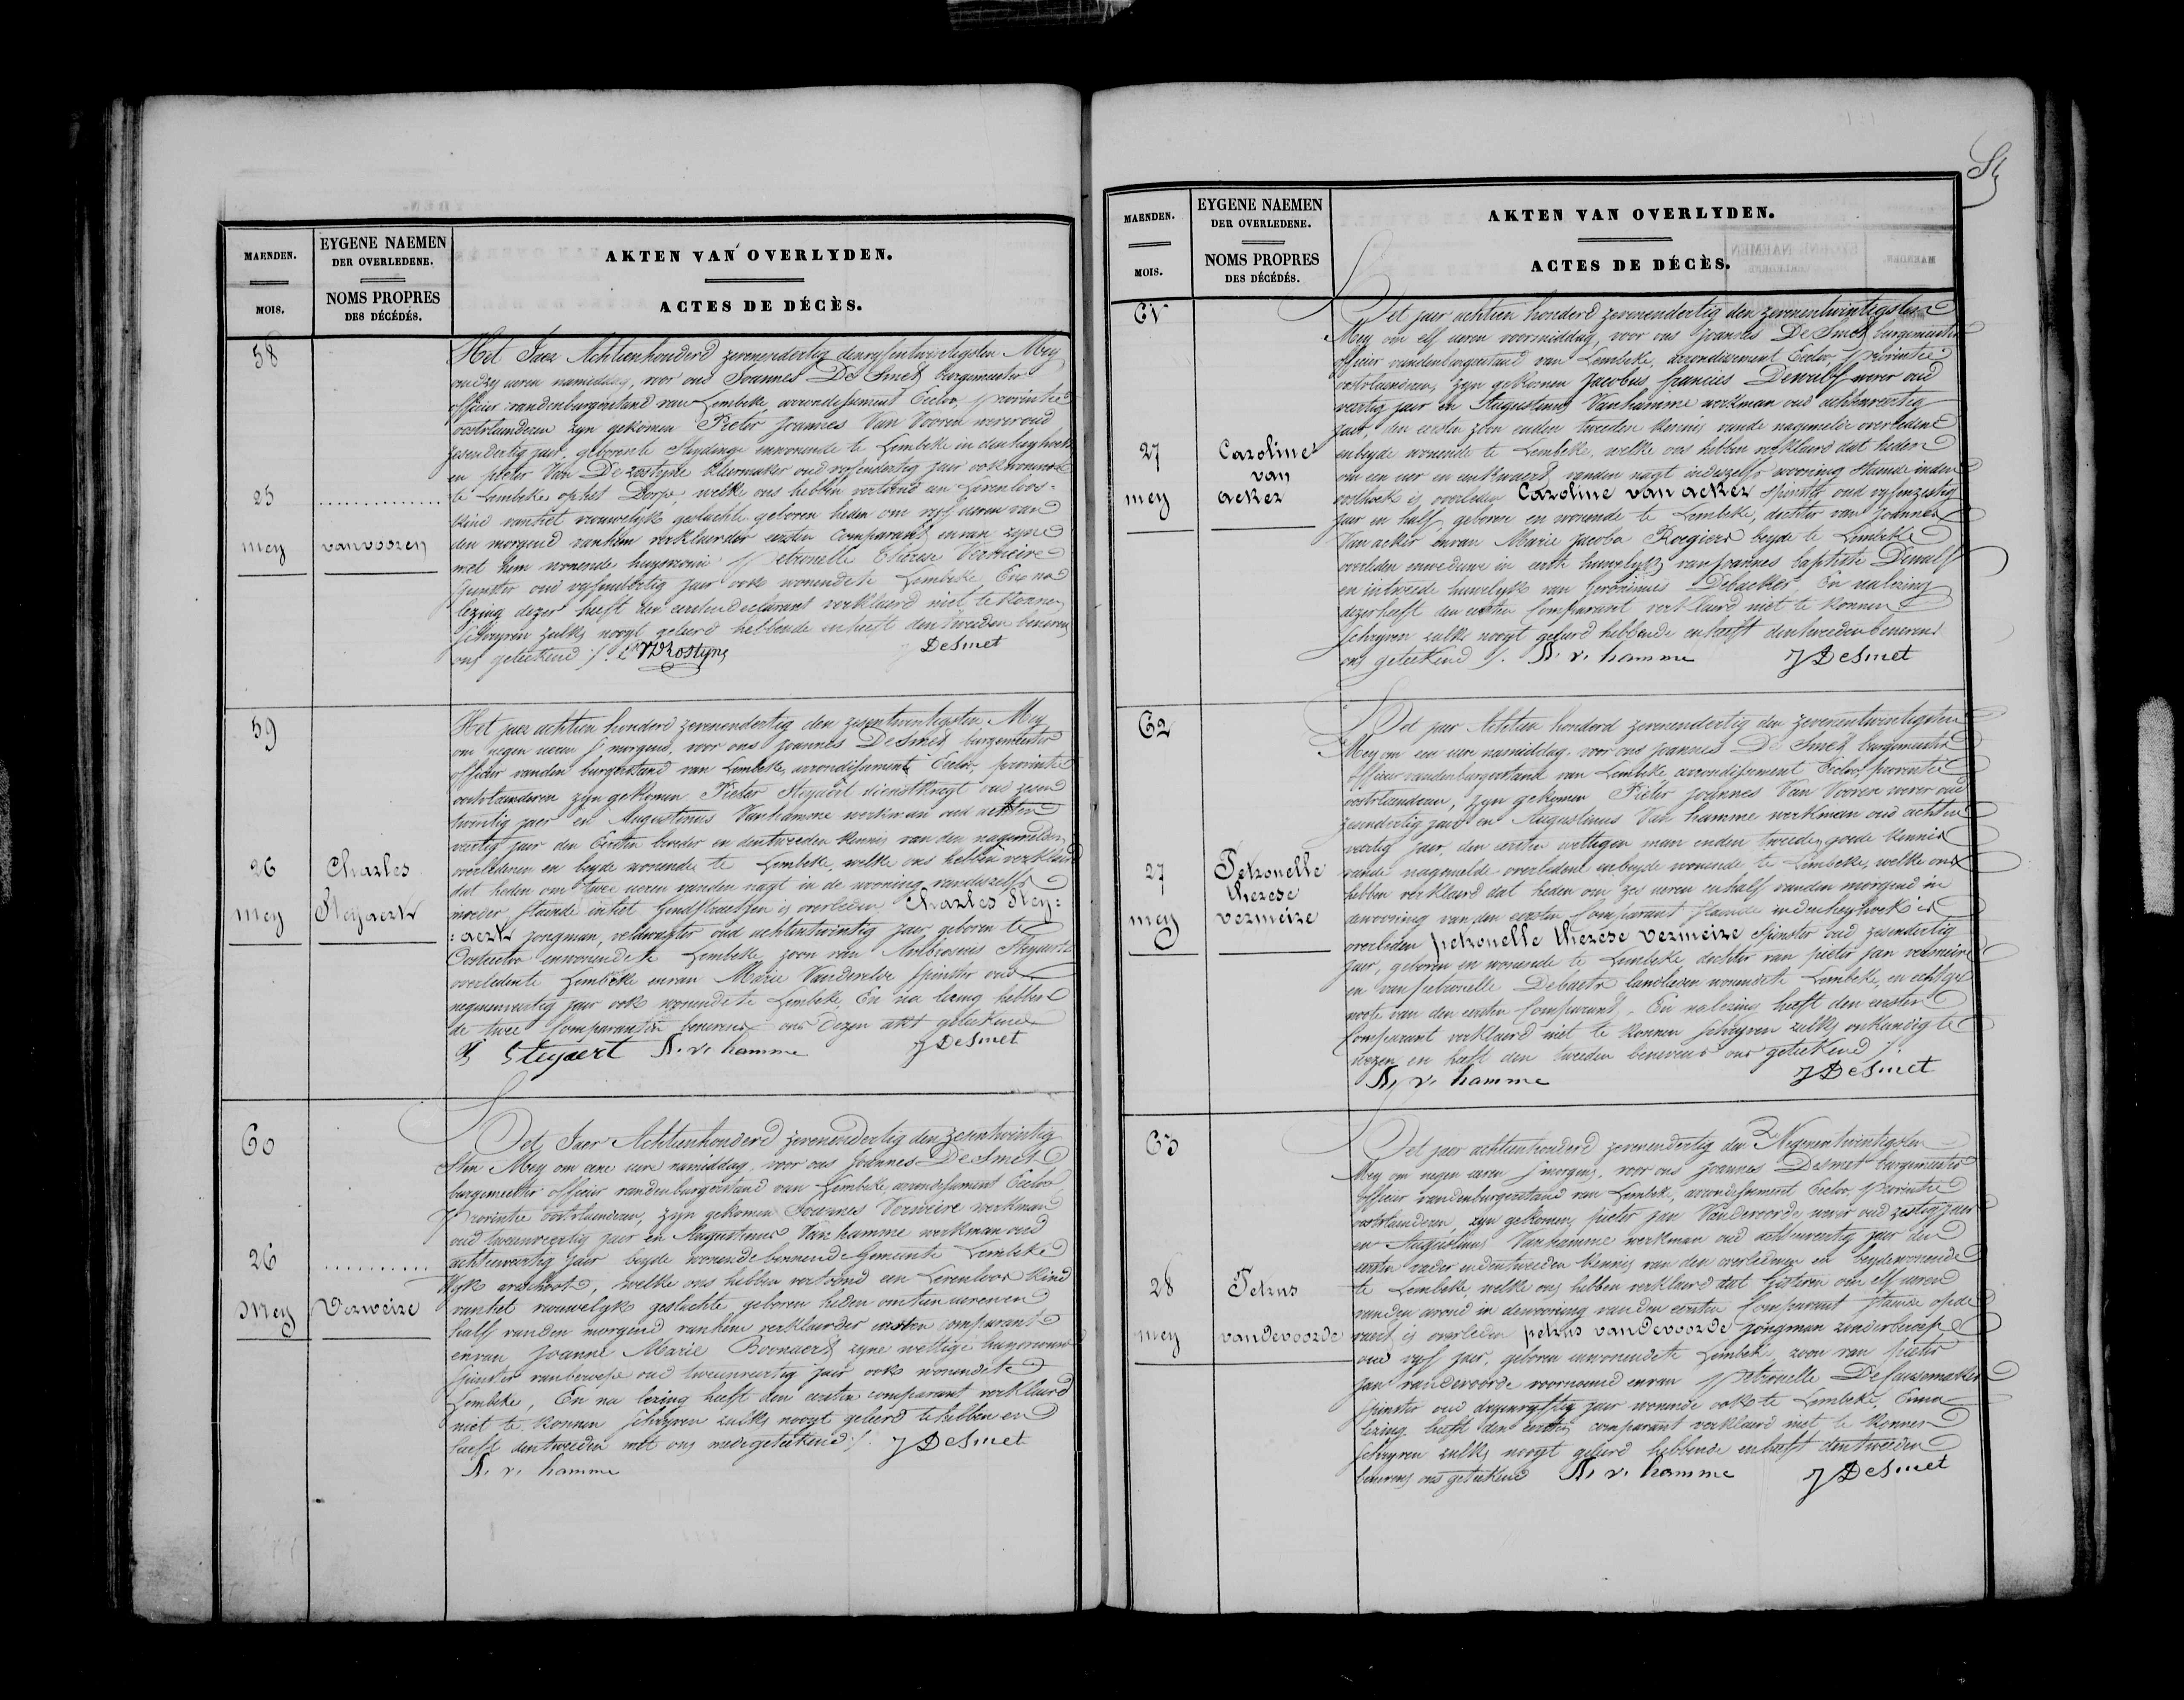 MAENDEN.
MOIS.
EYGENE NAEMEN
DER OVERLEDENE.
NOMS PROPRES
DES DÉCÉDÉS.
AKTEN VAN OVERLYDEN.
ACTES DE DÉCÈS.
58
25
mey
vanvooren
Het Jaer Achttienhonderd zevenendertig den vyfentwintigsten Mey
uren namiddag, voor ons Joannes De Smet burgemeester
officier vandenburgerstand van Lembeke arrondissement Eecloo, provintie
oostvlaenderen zyn gekomen Pieter Joannes Van Vooren wever oud
zesendertig jaer, geboren te Sleydinge enwonende te Lembeke in den heyhoek
en pieter Van De rostyne kleermaker oud vyfendertig jaer ook wonende
te Lembeke op het Dorp, welke ons hebben vertoond een Levenloos-
kind vanhet vrouwelyk geslachte geboren heden om vyf uren van
den morgend vanhem verklaerder eersten Comparant envan zyne
met hem wonende huysvrouw Petronelle Therese Vermeire
spinster oud jaer ook wonende te Lembeke En na
lezing dezer heeft den eersten declarant verklaerd niet te konnen
schryven zulks nooyt geleerd hebbende enheeft den tweeden benevens
ons geteekend /. VDRostyne J DeSmet
59
26
mey
Charles
Steyaert
Het jaer achttien honderd zevenendertig den zesentwintigsten Mey
om negen uren s' morgend, voor ons Joannes DeSmet burgemeester
officier vanden burgerstand van Lembeke, arrondissement Eecloo, provintie
oostvlaenderen zyn gekomen Pieter Steyaert dienstknegt oud zesen
twintig jaer en Augustinus Vanhamme werkman oud achten
veertig jaer den Eersten broeder en dentweeden kennis van den nagemelden
overledenen en beyde wonende te Lembeke, welke ons hebben verklaerd
dat heden om twee uren vanden nagt in de wooning vandeszelfs
moeder staende inhet Gendstraetjen is overleden Charles Stey:
:aert jongman, veldwagter oud achtentwintig jaer geboren te
Oosteecloo enwonende te Lembeke zoon van Ambrosius Steyaert
overleden te Lembeke envan Marie Vandevelde spinster oud
negenenveertig jaer ook wonende te Lembeke En na lezing hebben
de twee Comparanten benevens ons Dezen akt geteekend
P Steyaert A. v. hamme J DeSmet
60
26
Mey
Vermeire
Het Jaer Achttienhonderd zevenendertig den zesentwintig
sten Mey om eene ure namiddag, voor ons Joannes DeSmet
burgemeester officier vandenburgerstand van Lembeke arrondissement Eecloo
Provintie oostvlaenderen, zyn gekomen Joannes Vermeire werkman
oud tweenveertig jaer en Augustinus Van hamme werkman oud
achtenveertig jaer beyde wonende binnende Gemeente Lembeke
Wyk aveschoot, welke ons hebben vertoond een Levenloos kind
vanhet vrouwelyk geslachte geboren heden omtien uren en
half vanden morgend vanhem verklaerder eersten comparant
envan Joanne Marie Boonaert zyne wettige huysvrouw
spinster vanberoepe oud tweenveertig jaer ook wonende te
Lembeke, En na lezing heeft den eersten comparant verklaerd
niet te konnen schryven zulks nooyt geleerd te hebben en
heeft dentweeden met ons medegeteekend /. J DeSmet
A. v. hamme
MAENDEN.
MOIS.
EYGENE NAEMEN
DER OVERLEDENE.
NOMS PROPRES
DES DÉCÉDÉS.
AKTEN VAN OVERLYDEN.
ACTES DE DÉCÈS.
27
mey
Caroline
van
acker
Het jaer achttien honderd zevenendertig den zevenentwintigsten
Mey om elf uren voormiddag, voor ons Joannes DeSmet burgemeester
officier vandenburgerstand van Lembeke, arrondissement Eecloo, provintie
oostvlaenderen, zyn gekomen Jacobus francies Dewulf wever oud
veertig jaer en Augustinus Vanhamme werkman oud achtenveertig
jaer, den eersten zoon enden tweeden kennis vande nagemelde overledene
enbeyde wonende te Lembeke, welke ons hebben verklaerd dat heden
om een uer en eenkwaert vanden nagt indeszelfs wooning staende inden
oosthoek is overleden Caroline van acker spinster oud vyfenzestig
jaer en half, geboren en wonende te Lembeke, dochter van Joannes
Van acker envan Marie Jacoba Roegiers beyde te Lembeke
overleden enweduwe in eerste huwelyk van Joannes baptiste Dewulf
en intweede huwelyk van Jeronimus Debacker, En nalezing
dezer heeft den eersten Comparant verklaerd niet te konnen
schryven zulks nooyt geleerd hebbende enheeft dentweeden benevens
ons geteekend /. A. v. hamme J DeSmet
62
27
mey
Petronelle
therese
vermeire
Het jaer Achttien honderd zevenendertig den zevenentwintigsten
Mey om een ure namiddag, voor ons Joannes De Smet burgemeester
officier vandenburgerstand van Lembeke arrondissement Eecloo, provintie
oostvlaenderen, zyn gekomen Pieter Joannes Van Vooren wever oud
zesendertig jaer en Augustinus Van hamme werkman oud achten
veertig jaer, den eersten wettigen man enden tweeden goede kennis
vande nagemelde overledene enbeyde wonende te Lembeke, welke ons
hebben verklaerd dat heden om zes uren enhalf vanden morgend in
dewooning van den eersten Comparant staende indenheyhoek is
overleden petronelle therese vermeire spinster oud zesendertig
jaer, geboren en wonende te Lembeke dochter van pieter jan vermeire
en van petronelle Debaets landlieden wonende te Lembeke, en echtge
noote van den eersten Comparant. En nalezing heeft den eersten
Comparant verklaerd niet te konnen schryven zulks onkundig te
wezen en heeft den tweeden benevens ons geteekend /.
A. v. hamme J DeSmet
63
28
mey
Petrus
vandevoorde
Het jaer achttienhonderd zevenendertig den Negenentwintigsten
Mey om negen uren s'morgens, voor ons Joannes Desmet burgemeester
officier vandenburgerstand van Lembeke, arrondissement Eecloo, provintie
oostvlaenderen, zyn gekomen pieter jan Vandevoorde wever oud zestig jaer
en Augustinus Vanhamme werkman oud achtenveertig jaer den
eersten vader endentweeden kennis van den overledenen en beydewonende
te Lembeke, welke ons hebben verklaerd dat gisteren om elf uren
vanden avond in dewooning vanden eersten Comparant staende opde
is overleden petrus vandevoorde jongman zonderberoep
oud vyf jaer, geboren enwonende te Lembeke, zoon van pieter
jan vandevoorde voornoemd envan petronelle
spinster oud jaer wonende ook te Lembeke, Enna
lezing heeft den eersten comparant verklaerd niet te konnen
schryven zulks nooyt geleerd hebbende enheeft dentweeden
benevens ons geteekend A. v. hamme J DeSmet